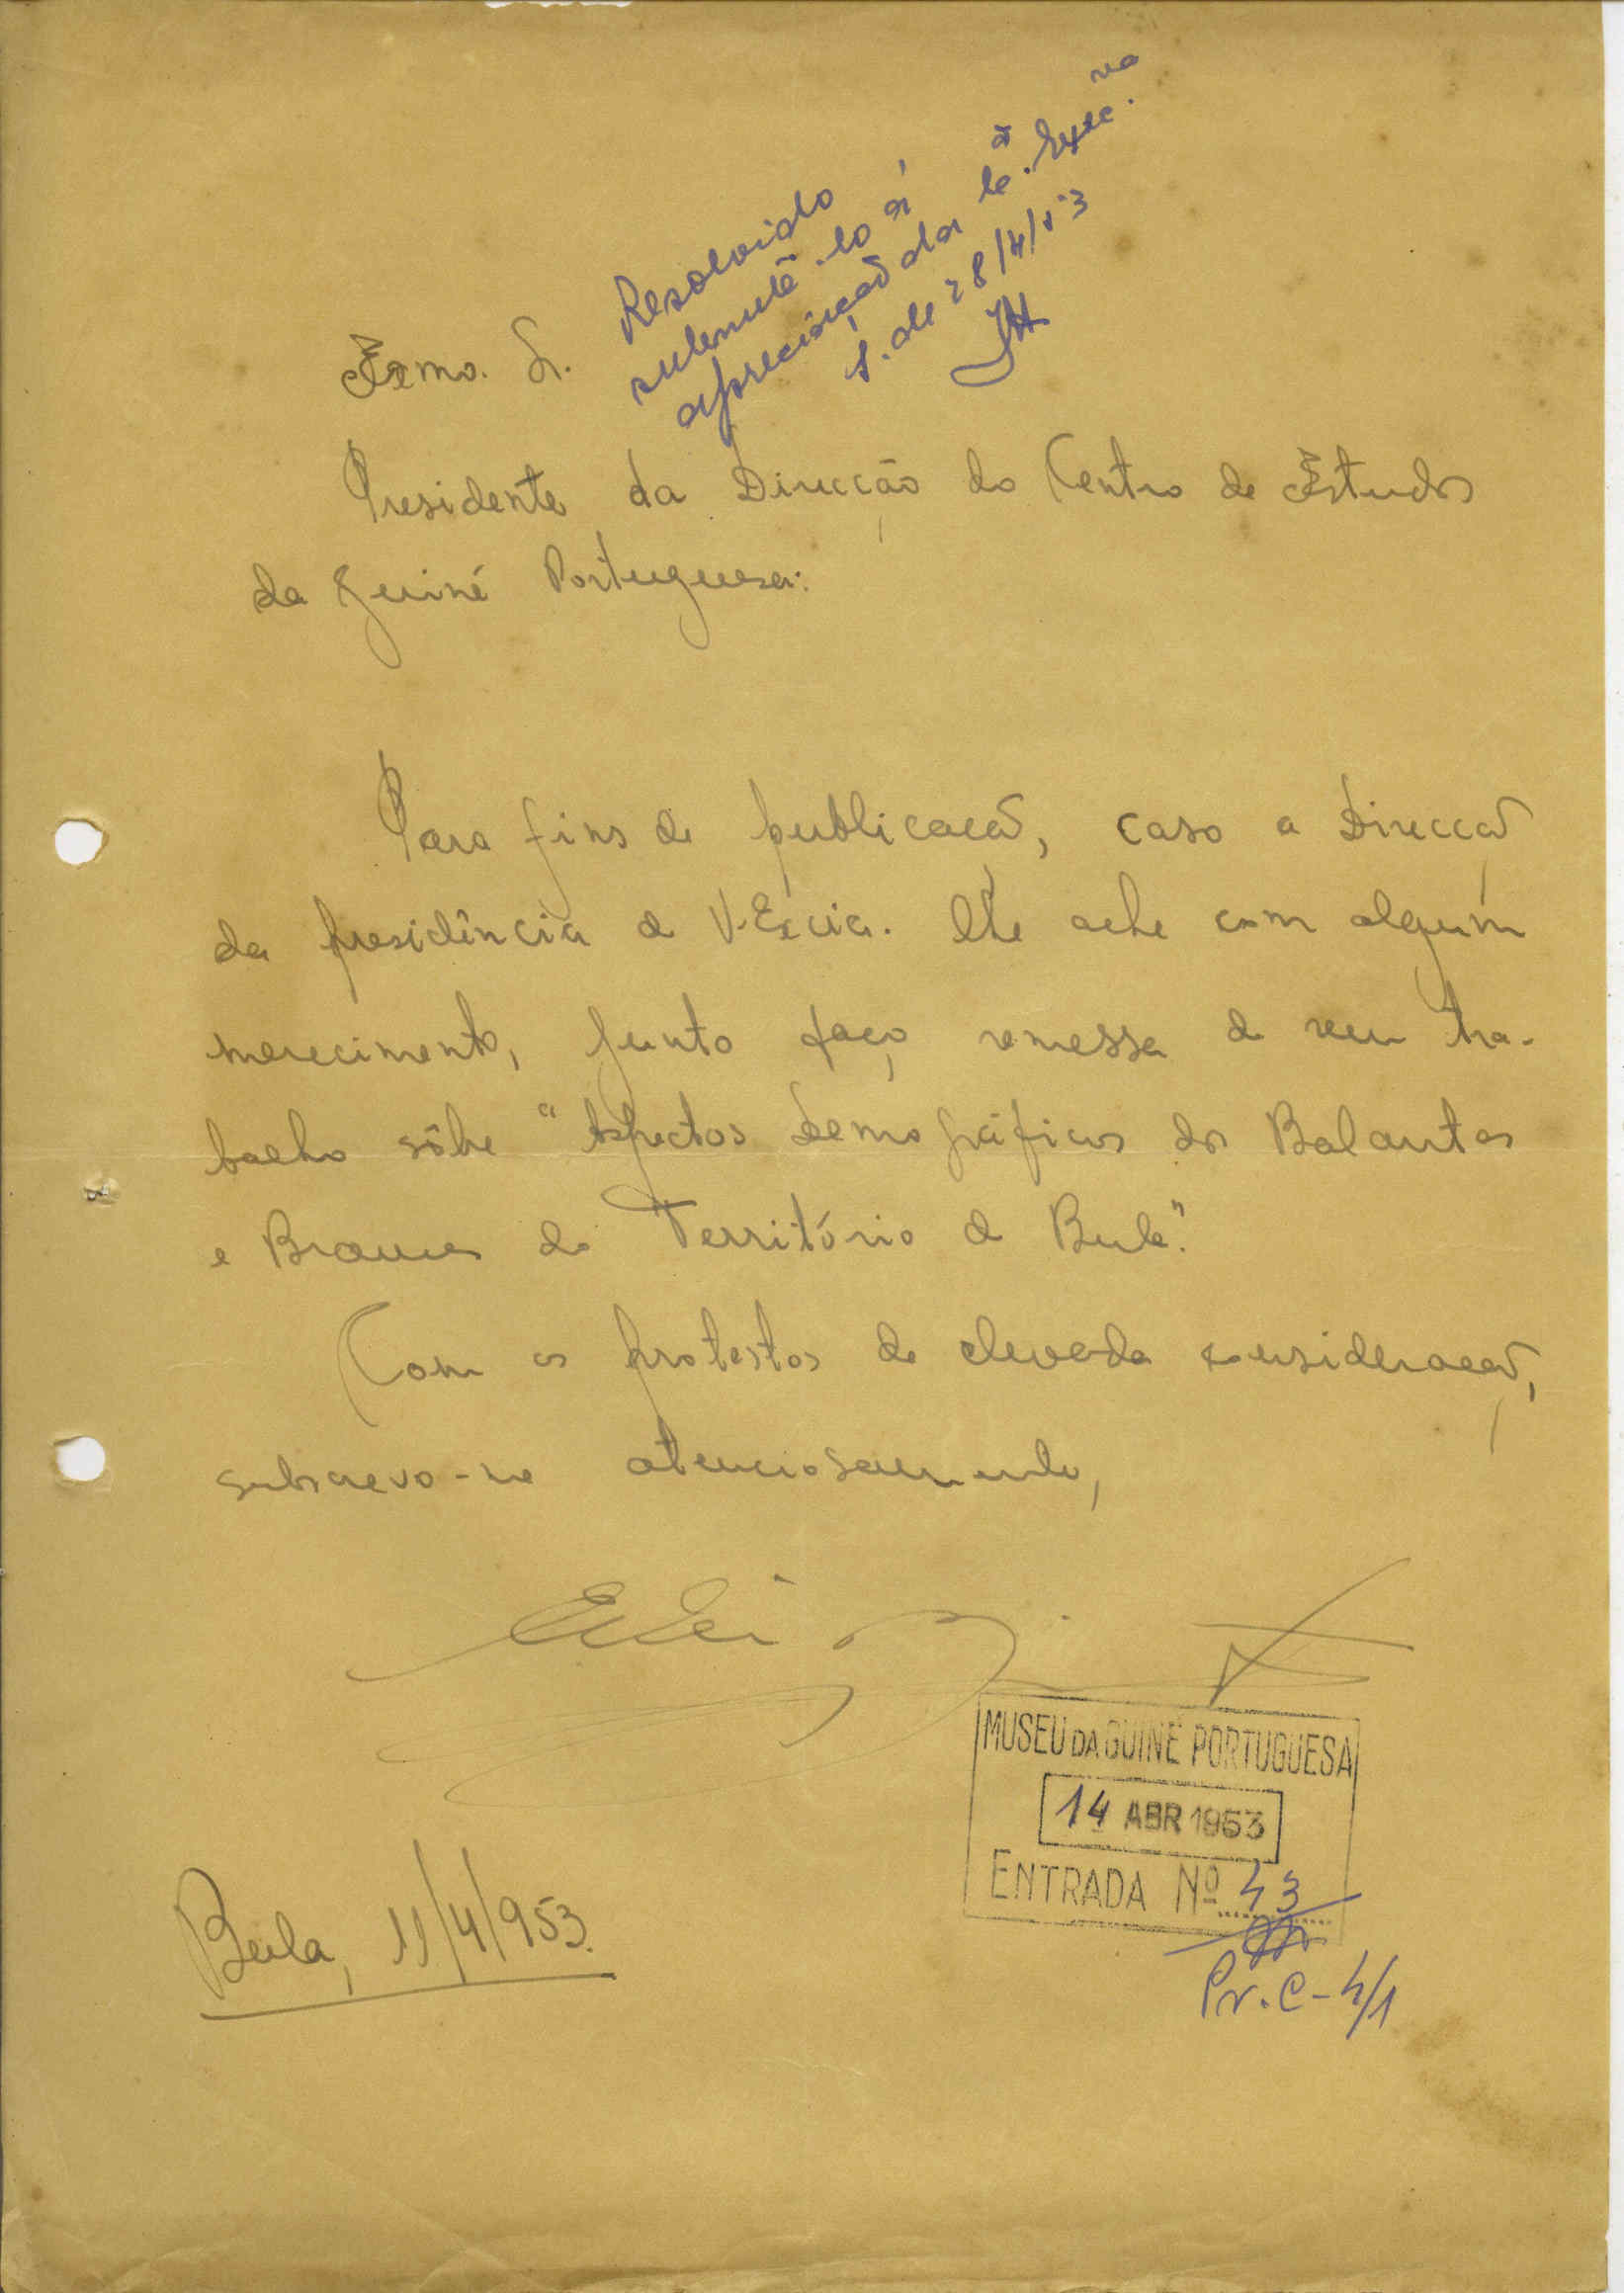 Resolvido
submetê-lo à
apreciação da
S. de 28/4/53
Exmo. Sr.
Presidente da Direcção do Centro de Estudos
da Guiné Portuguesa:
Para fins de publicação, caso a Direcção
da presidência de V. Excia. lhe ache com algum
merecimento, junto faço remessa de meu tra-
balho sôbre "Aspectos Demográficos dos Balantas
e Brames do Território de Bula".
Com os protestos de elevada consideração,
subscrevo-me atenciosamente,
MUSEU DA GUINÉ PORTUGUESA
14 ABR 1953
ENTRADA Nº 43
Bula, 11/4/953.
Pr. C-4/1